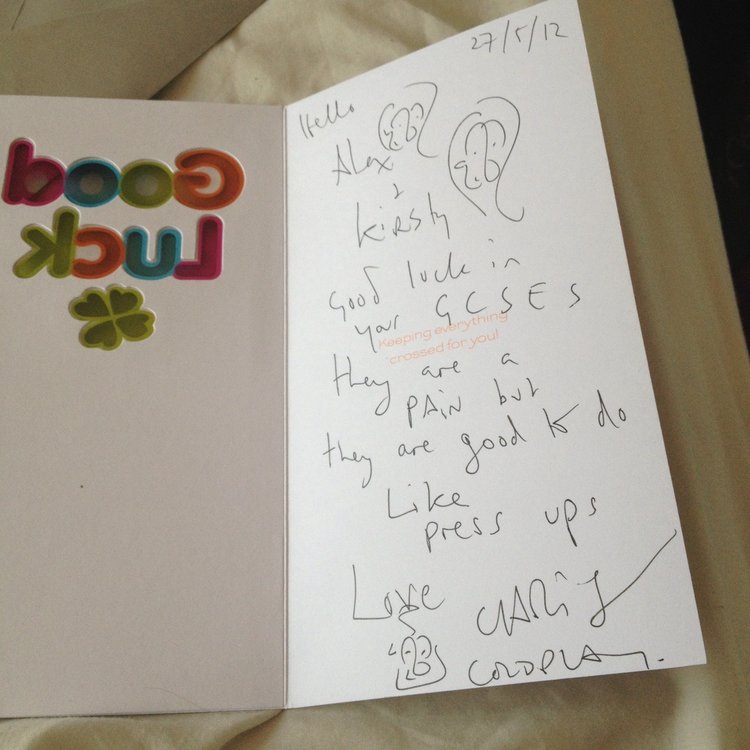 Good
Luck
27/5/12
Hello
Alex
&
Kirsty
Good luck in
your GCSES
Keeping everything
crossed for you!
they are a
PAiN but
they are good to do
Like
press ups
Love
COLDPLAY.